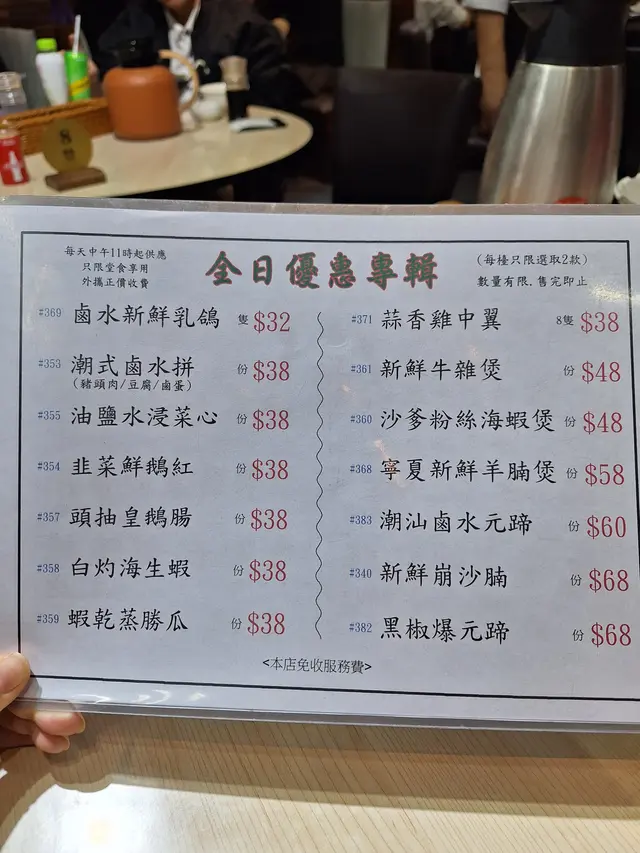 每天中午11時起供應
只限堂食享用
外攜正價收費
全日優惠專輯
(每檯只限選取2款)
數量有限．售完即止
#369 鹵水新鮮乳鴿 隻 $32
#353 潮式鹵水拼 份 $38
(豬頭肉/豆腐/鹵蛋)
#355 油鹽水浸菜心 份 $38
#354 韭菜鮮鵝紅 份 $38
#357 頭抽皇鵝腸 份 $38
#358 白灼海生蝦 份 $38
#359 蝦乾蒸勝瓜 份 $38
#371 蒜香雞中翼 8隻 $38
#361 新鮮牛雜煲 份 $48
#360 沙爹粉絲海蝦煲 份 $48
#368 寧夏新鮮羊腩煲 份 $58
#383 潮汕鹵水元蹄 份 $60
#340 新鮮崩沙腩 份 $68
#382 黑椒爆元蹄 份 $68
<本店免收服務費>